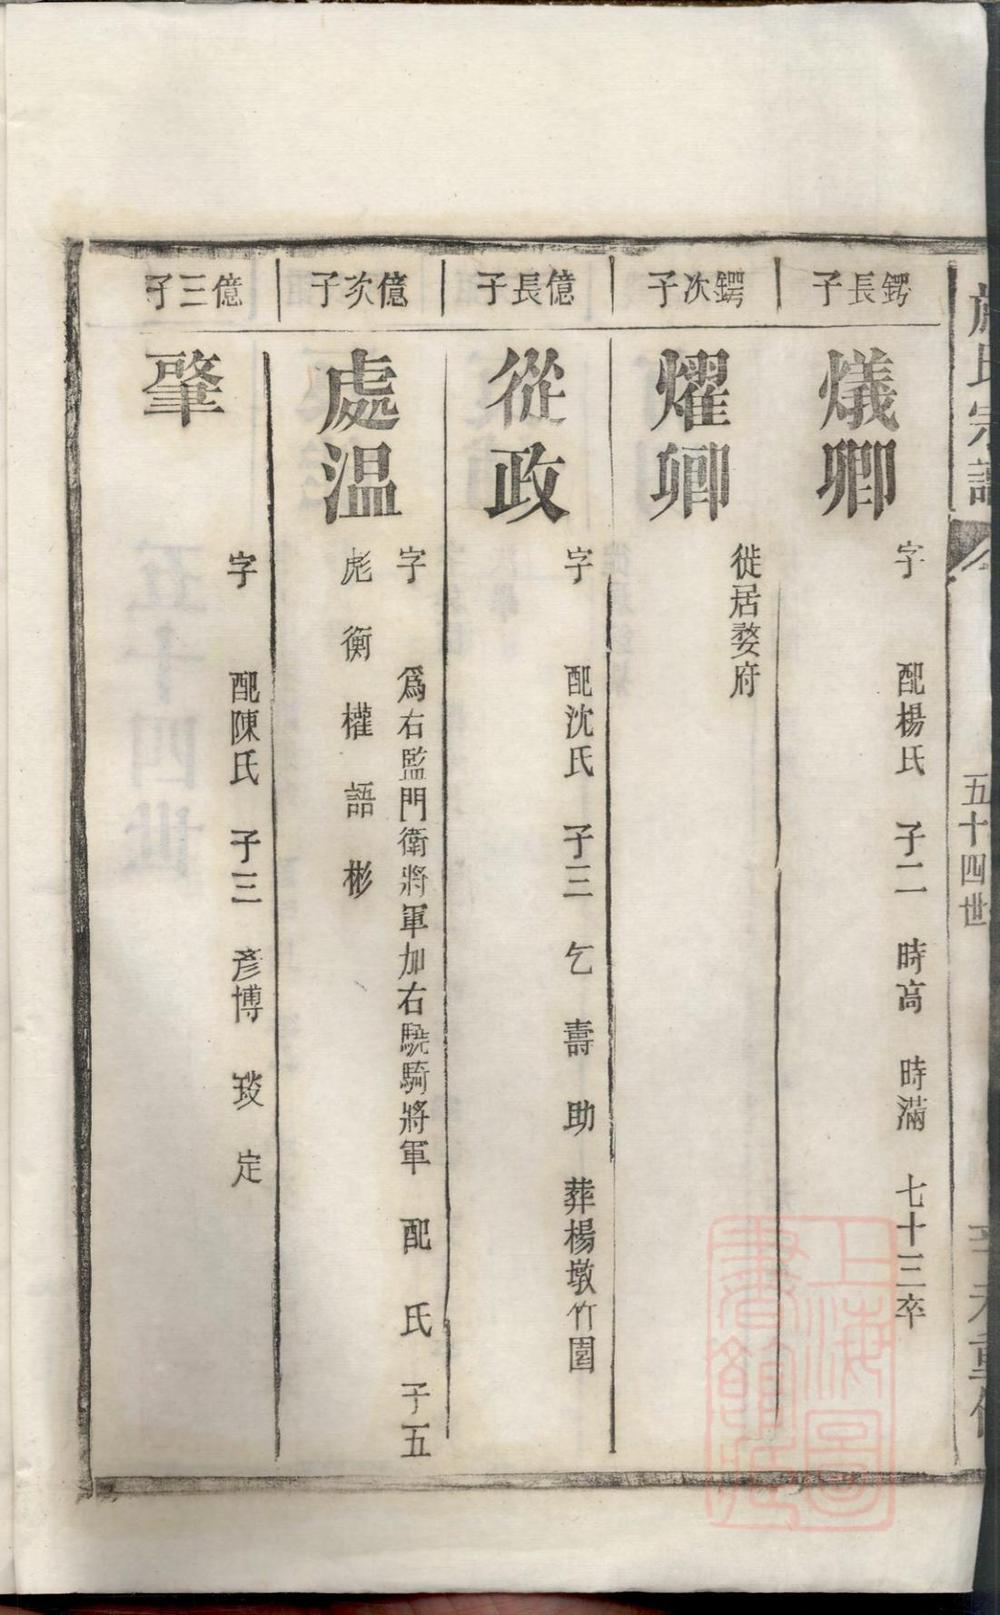 五十四世
鍔長子
爔卿
字 配楊氏 子二 時高 時滿 七十三卒
鍔次子
燿卿
徙居婺府
億長子
從政
字 配沈氏 子三 乞 壽 助 葬楊墩竹園
億次子
處温
字 爲右監門衛將軍加右驍騎將軍 配 氏 子五
彪 衡 權 語 彬
億三子
肇
字 配陳氏 子三 彦博 琰 定
上海圖書館藏